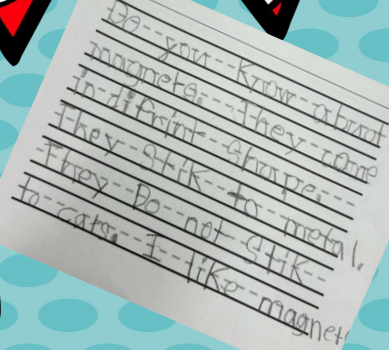 Do you Know about
magnets. They come
in difrint shape.
They Stik to metal.
They Do not Stik
to cats. I like magnets